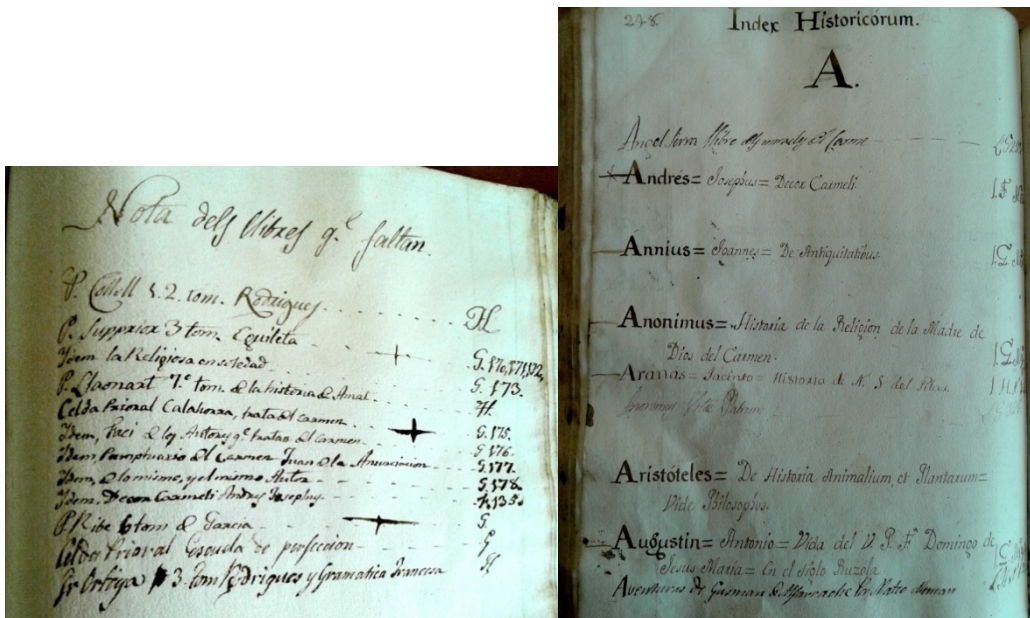 Nota dels llibres q.e faltan.
P. Collell 1. 2. tom. Rodrigues H
P. Supprior 3 tom. Equileta
Idem la Religiosa en soledad G. 170, 171, 172,
P. Llaonart 7.o tom. de la historia de Amat G 173.
Celda Prioral Calahorra, trata del carmen H.
Idem, Faci de los Autores q.e tratan del Carmen G. 175.
Idem Pamptuario del Carmen Juan de la Anunciacion G 176.
Idem, de lo mismo, y el mismo Autor G. 177.
Idem. Decor Carmeli Andres Josephus G. 178.
P. Ribe 6 tom de Garcia F. 135.
Celda Prioral Escuela de perfeccion G.
Fr Ortega 3. tom Rodrigues y Gramatica francesa G
H
248.
Index Historicórum.
A.
Angel Serra llibre dels del Carme
Andrés= Josephus= Decor Carmeli
Annius= Joannes= De Antiquitatibus.
Anonimus= Historia de la Religion de la Madre de
Dios del Carmen.
Aranas= Jacinto= Historia de N. S del Pilar.
Jeronimus Vitæ Patrum
Aristóteles= De Historia Animalium, et Plantarum=
Vide Philosophus.
Augustin= Antonio= Vida del V. P. Fr Domingo de
Jesus Maria= En el siglo Ruzola
Aventuras de Gusman de Alfarache Pr. Matteo Aleman